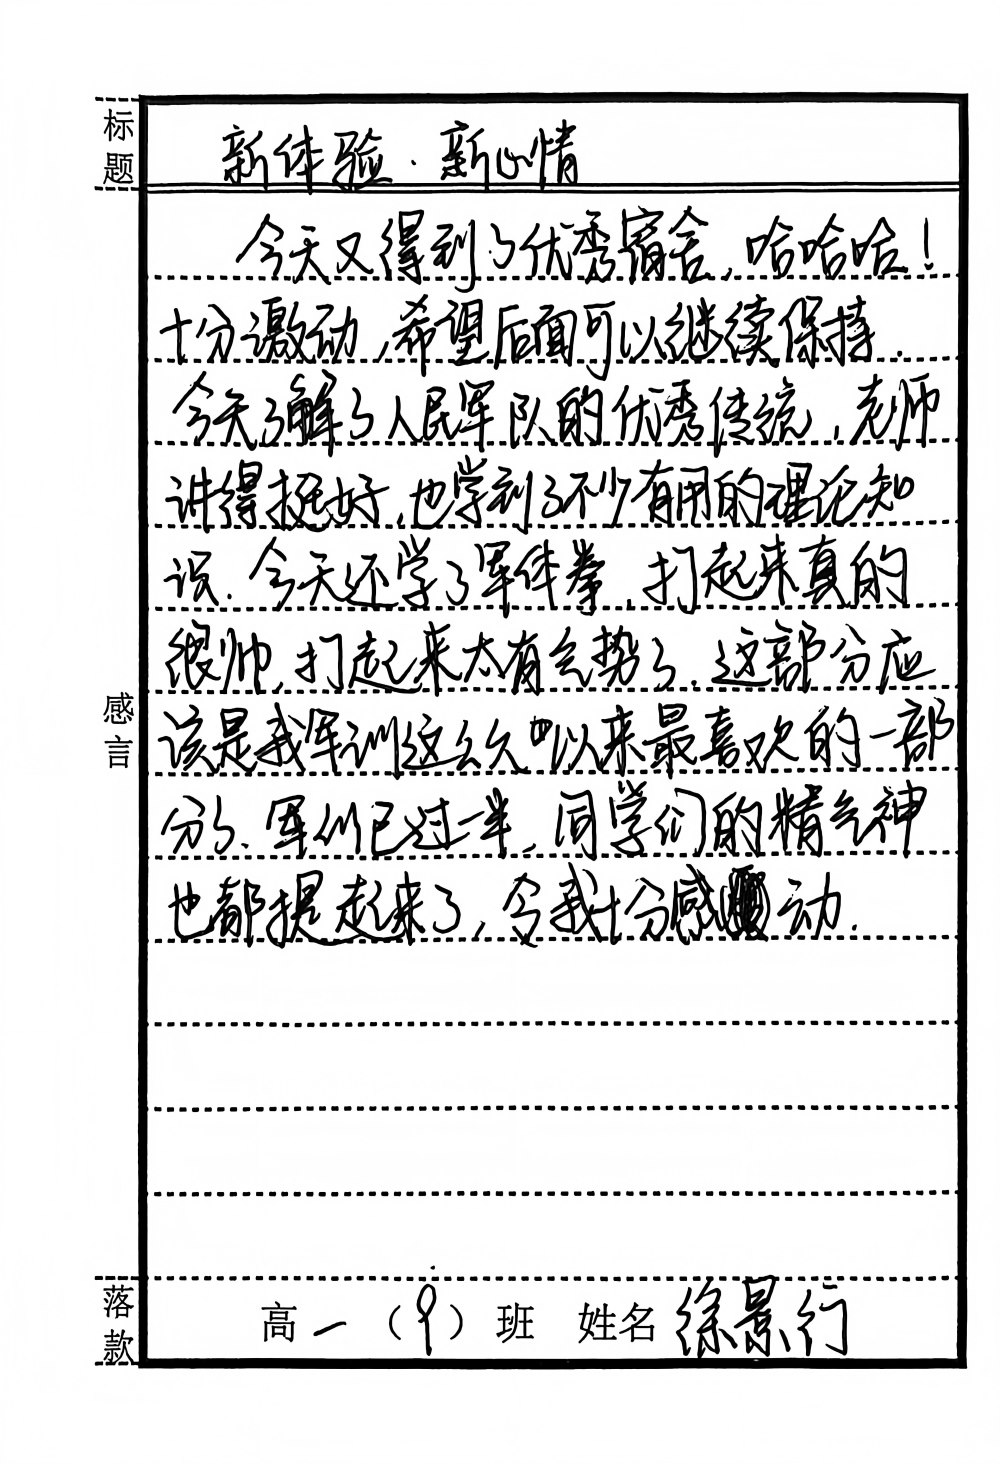 标题
新体验·新心情
今天又得到了优秀宿舍，哈哈哈！
十分激动，希望后面可以继续保持.
今天了解了人民军队的优秀传统，老师
讲得挺好，也学到了不少有用的理论知
识.今天还学了军体拳，打起来真的
很帅，打起来太有气势了.这部分应
该是我军训这么久以来最喜欢的一部
分了、军训已过一半，同学们的精气神
也都提起来了，令我十分感动.
感言
落款
高一（9）班 姓名 徐景行